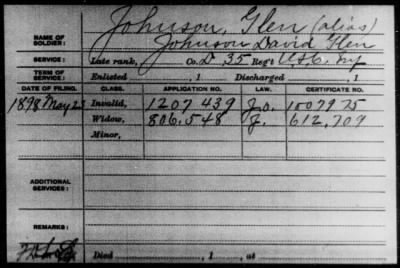 Johnson, Glen (alias)
NAME OF SOLDIER: Johnson David Glen
SERVICE: Late rank, Co. D, 35 Reg't U.S.C. Inf
TERM OF SERVICE: Enlisted , 1 Discharged , 1
DATE OF FILING. CLASS. APPLICATION NO. LAW. CERTIFICATE NO.
1898 May 23 Invalid, 1207 439 1007975
Widow, 806,548 612,709
Minor,
ADDITIONAL SERVICES:
REMARKS:
Died , 1 , at